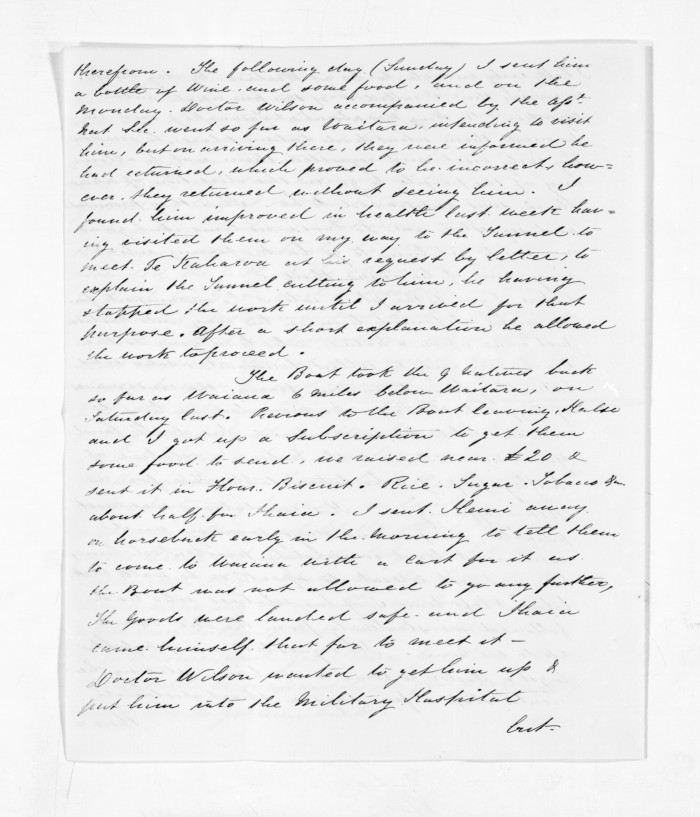 therefrom. The following day (Sunday) I sent him
a bottle of Wine and some food, and on the
Monday. Doctor Wilson accompanied by the Asst.
Nat Sec. went so far as Waitara, intending to visit
him, but on arriving there, they were informed he
had returned, which proved to be incorrect, how=
ever, they returned without seeing him. I
found him improved in health last week hav=
ing visited them on my way to the Tunnel to
meet Te Kaharoa at his request by letter, to
explain the Tunnel cutting to him, he having
stopped the work until I arrived for that
purpose. After a short explanation he allowed
the work to proceed.
The Boat took the 9 Natives back
so far as Waiana 6 miles below Waitara, on
Saturday last. Previous to the Boat leaving, Halse
and I got up a Subscription to get them
some food to send, we raised near £20 &
sent it in Flour. Biscuit. Rice. Sugar. Tobacco &c.
about half for Ihaia. I sent Hemi away
on horseback early in the morning to tell them
to come to Waiana with a Cart for it as
the Boat was not allowed to go any further,
The Goods were landed safe and Ihaia
came himself that far to meet it –
Doctor Wilson wanted to get him up &
put him into the Military Hospital
but